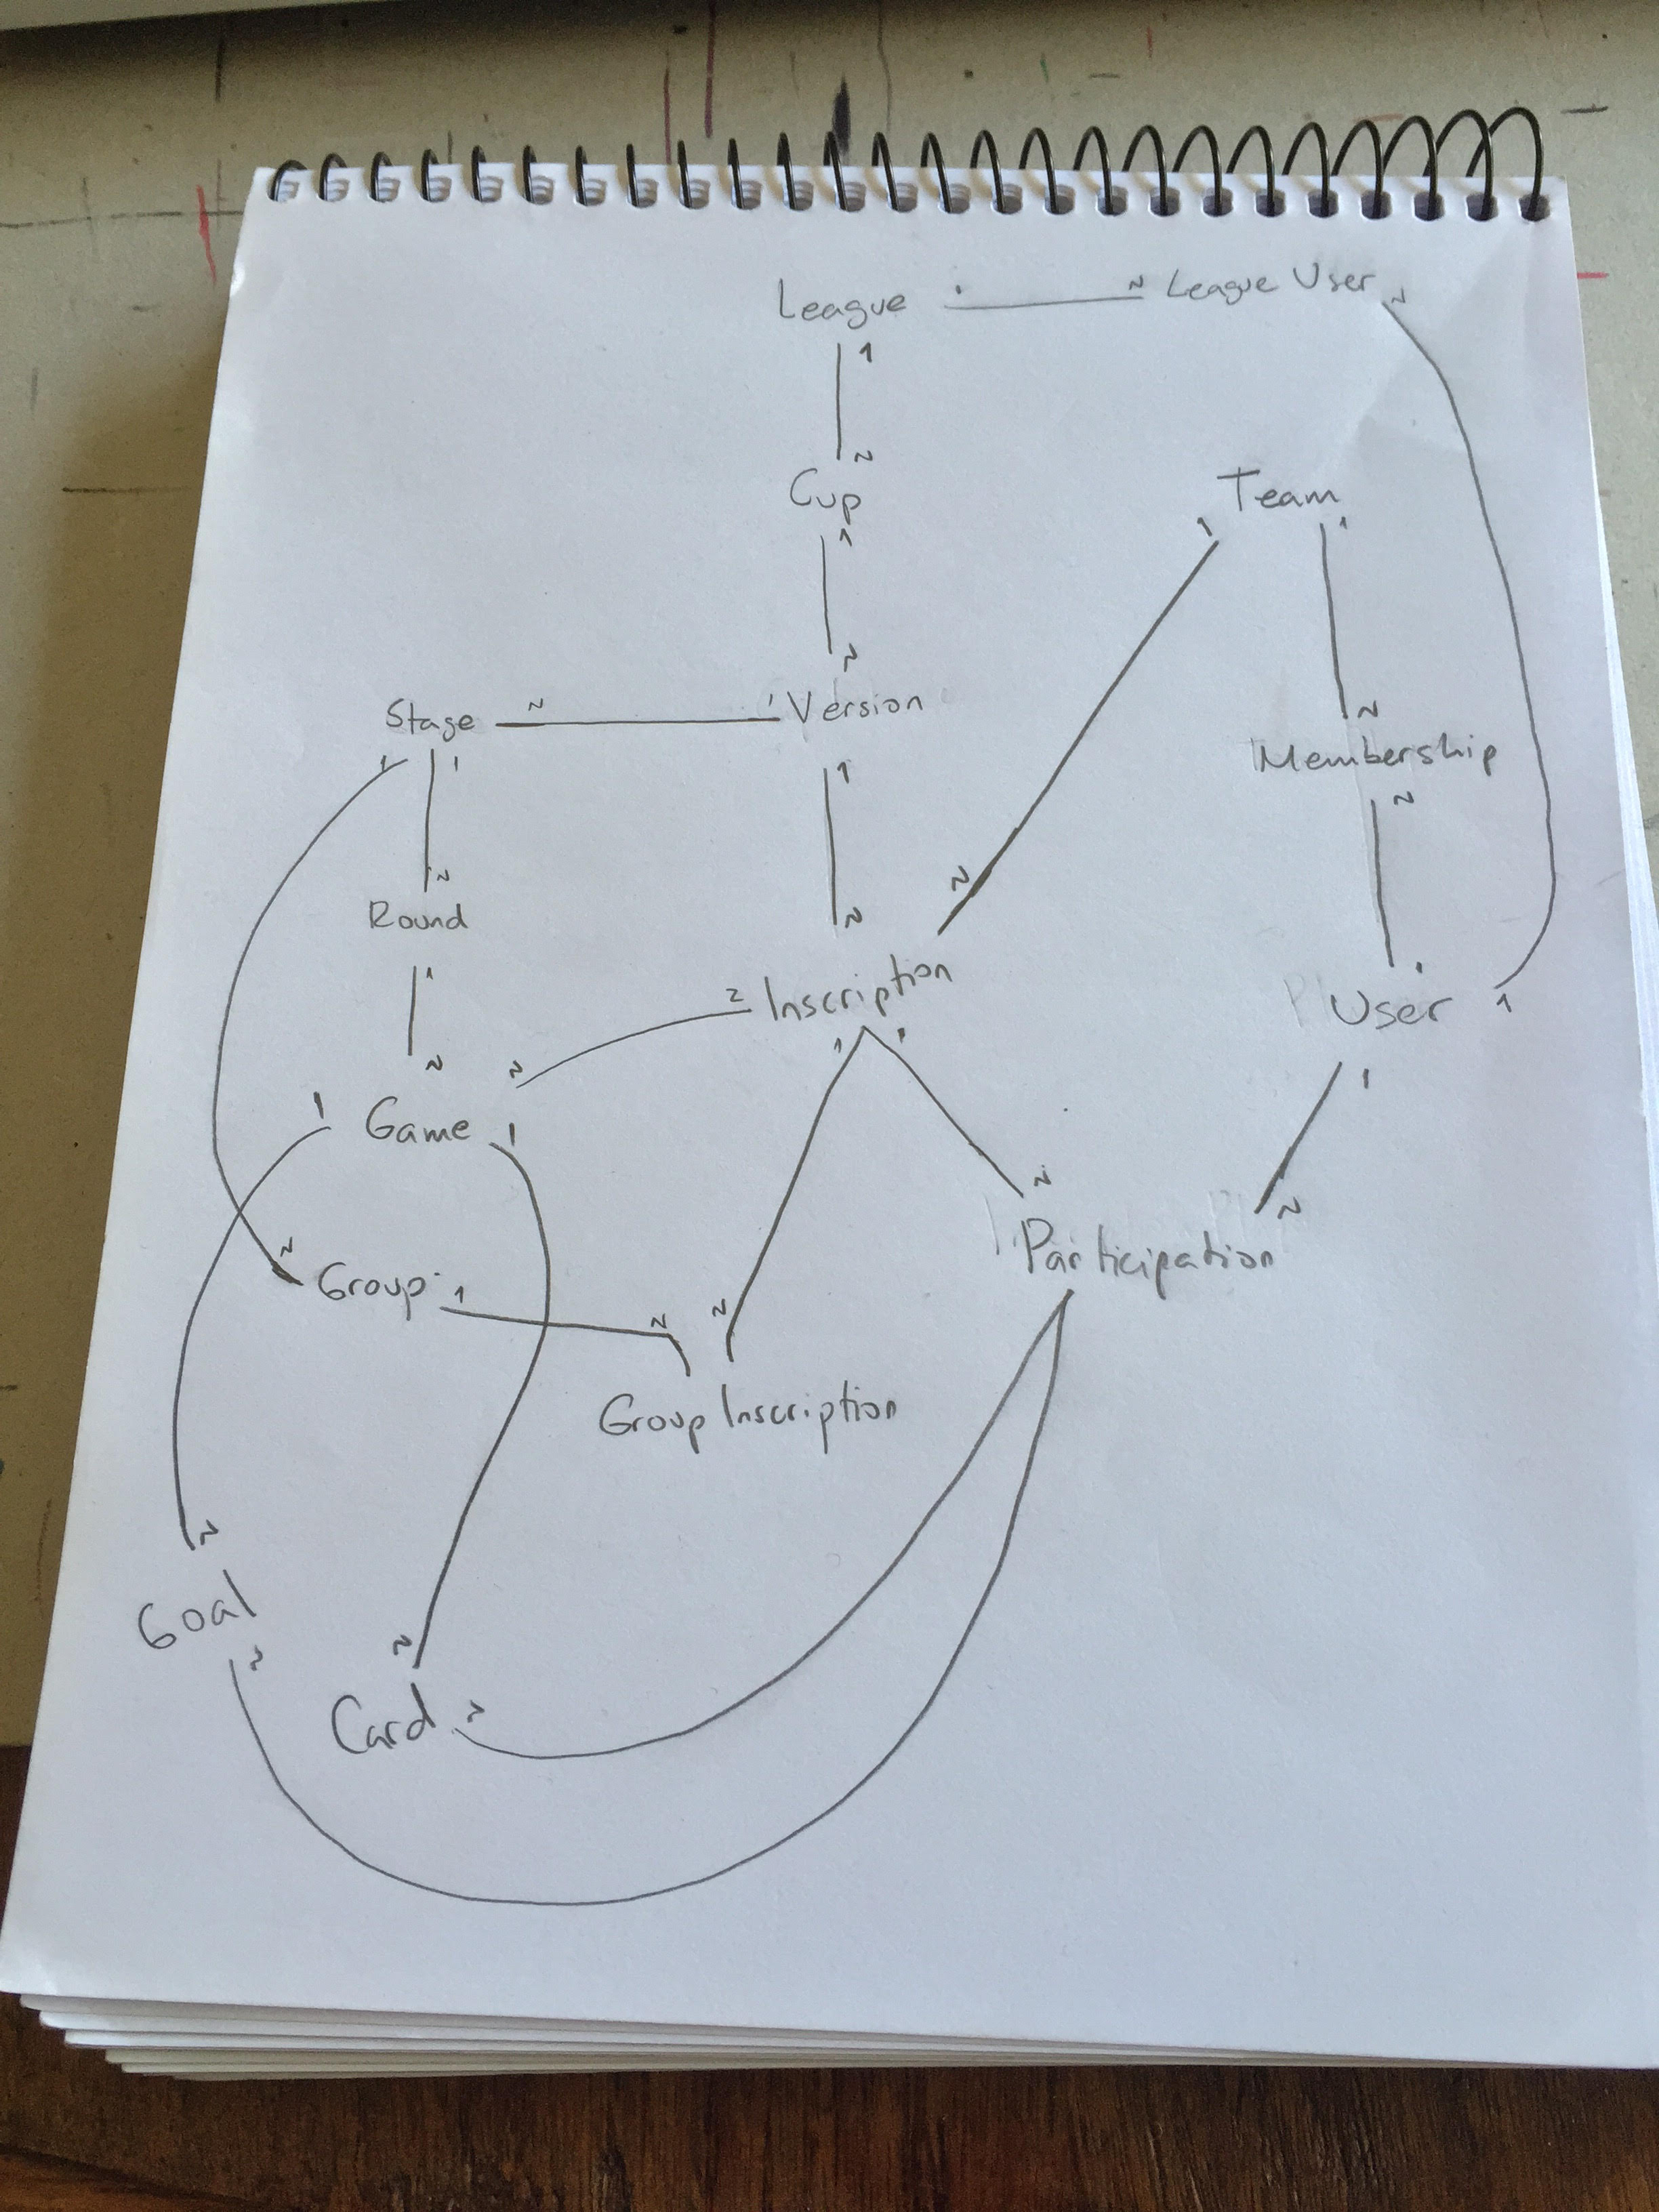 League 1 N League User N
1
N
Cup
1
N
Team
1 1
N
Membership
N
Stage N 1 Version
1 1
N
Round
1
N
1
N
N
2 Inscription
1 1
1
User 1
1
N
N
1 Game 1
N
N
Participation
N
Group 1 N N
Group Inscription
N
Goal
N
N
Card N